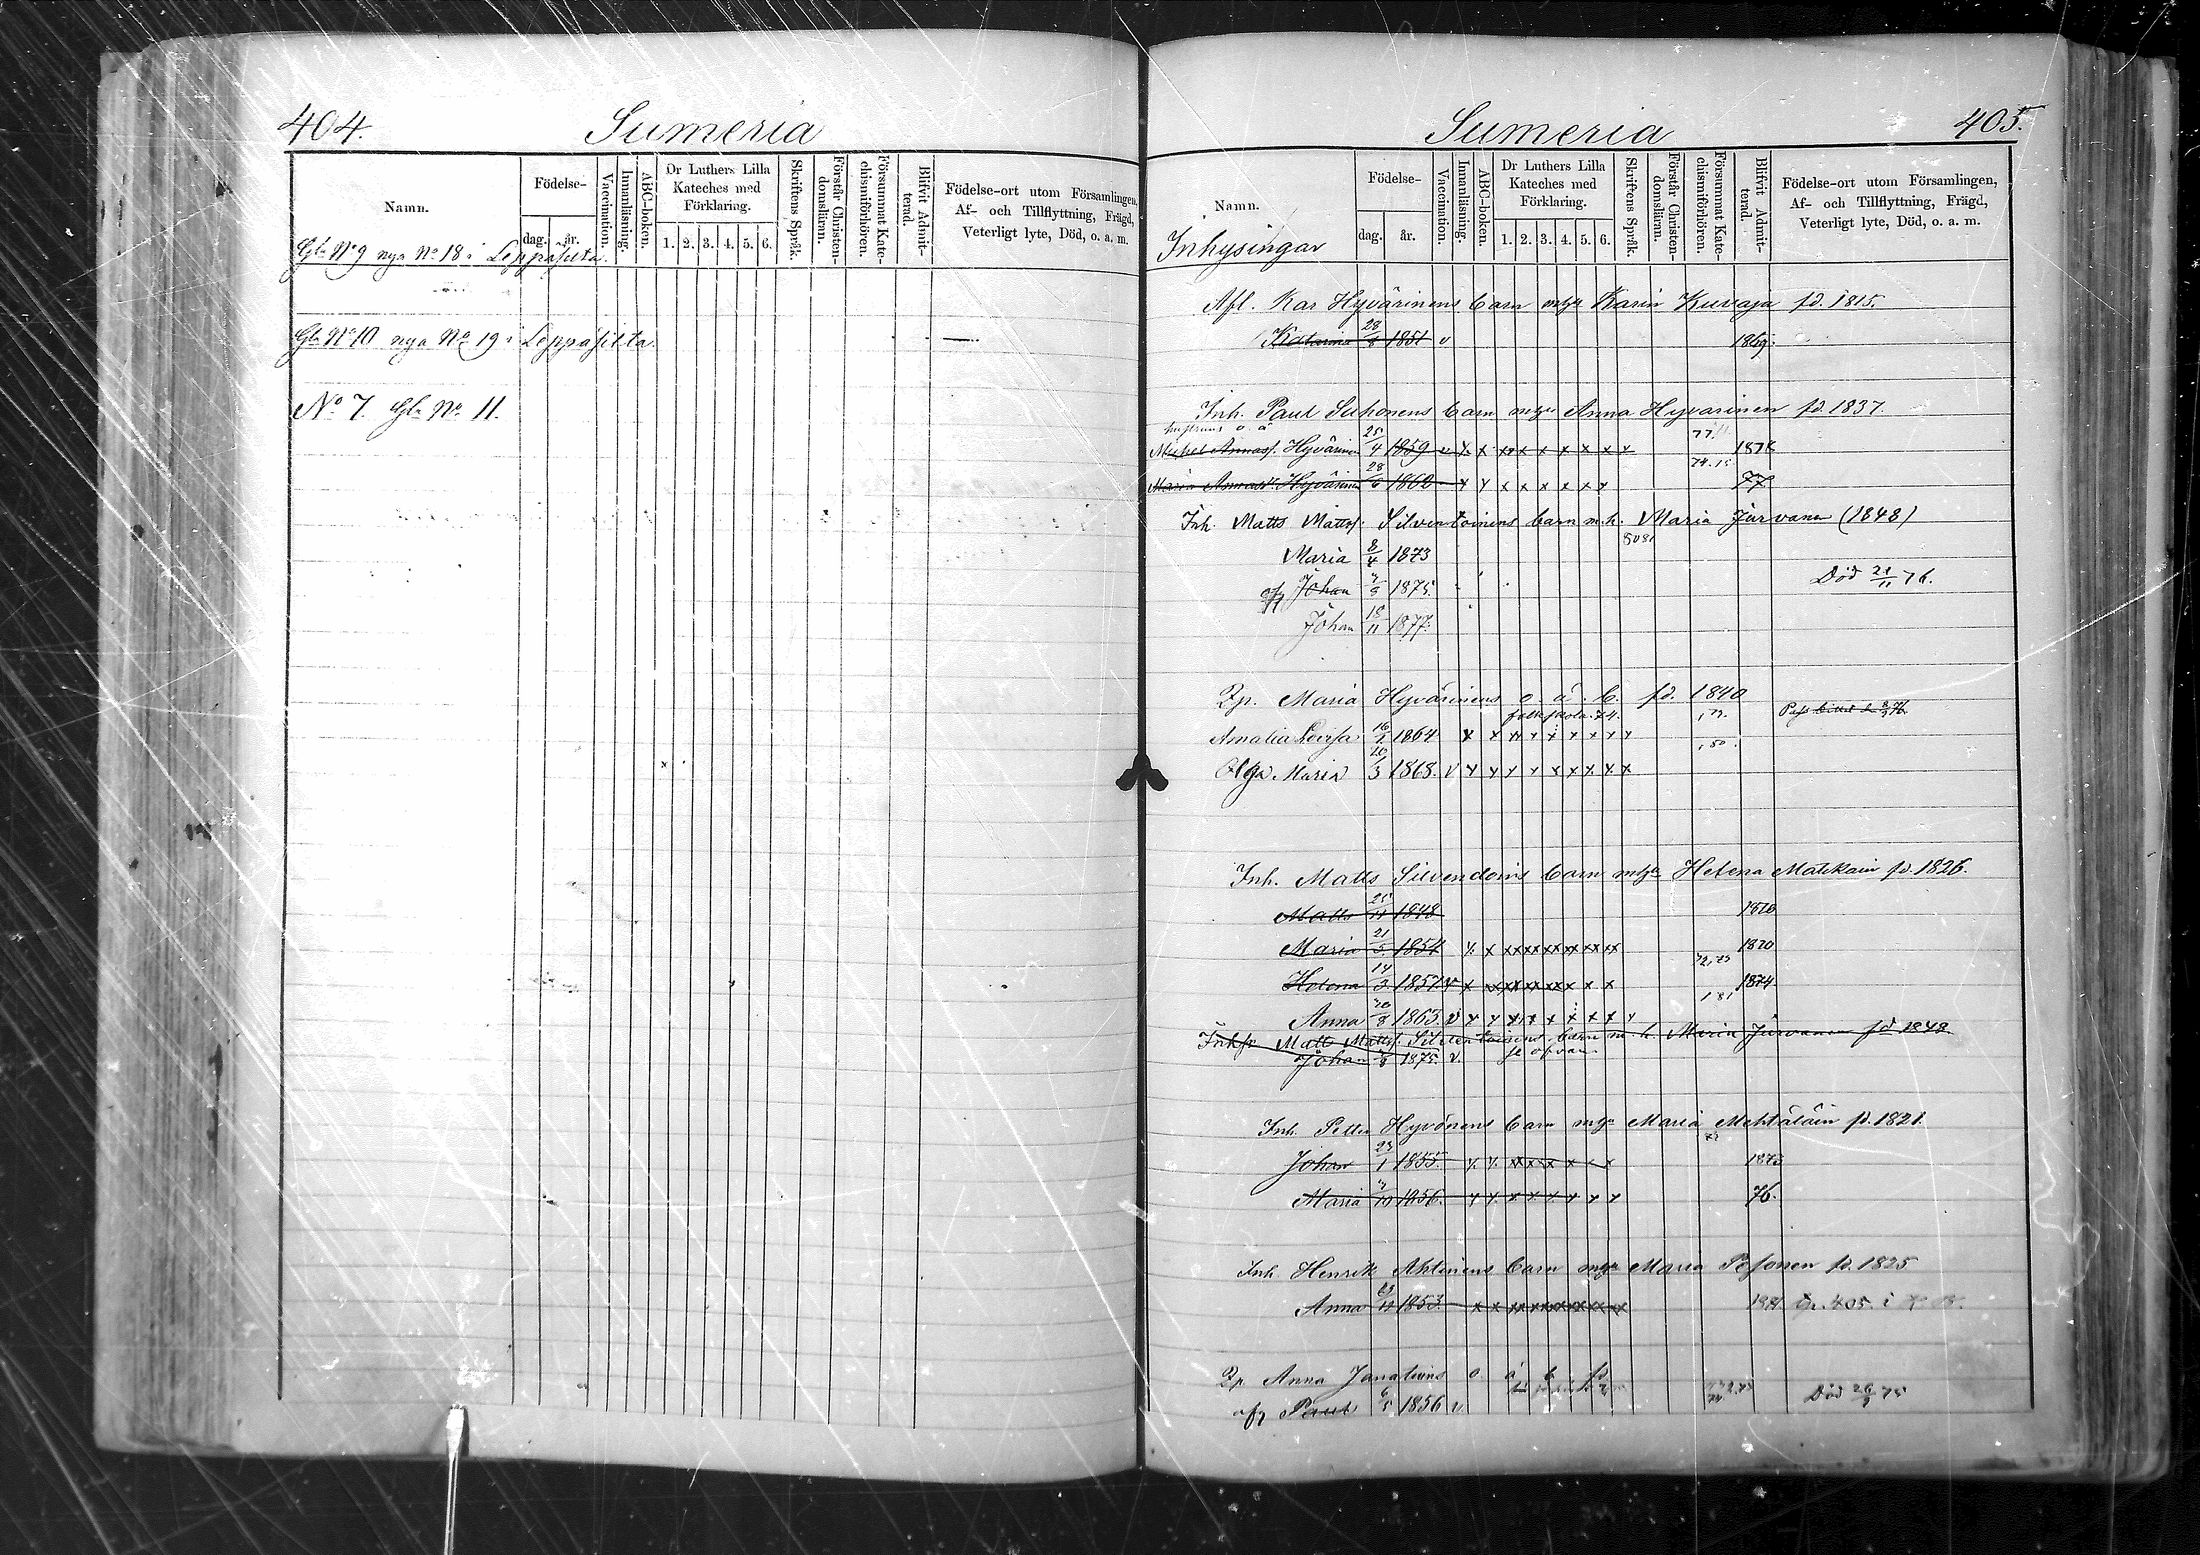 404.
Sumeria
Namn.
Födelse-
dag. år.
Vaccination.
Innanläsning.
ABC-boken.
Dr Luthers Lilla
Kateches med
Förklaring.
1. 2. 3. 4. 5. 6.
Skriftens Språk.
Förstår Christen-
domsläran.
Försummat Kate-
chismiförhören.
Blifvit Admit-
terad.
Födelse-ort utom Församlingen,
Af- och Tillflyttning, Frägd,
Veterligt lyte, Död, o. a. m.
Gla No 9 nya No 18 i Leppäsilta.
Gla No 10 nya No 19 i Leppäsilta.
No 7. Gla No 11.
Sumeria
405.
Namn.
Födelse-
dag. år.
Vaccination.
Innanläsning.
ABC-boken.
Dr Luthers Lilla
Kateches med
Förklaring.
1. 2. 3. 4. 5. 6.
Skriftens Språk.
Förstår Christen-
domsläran.
Försummat Kate-
chismiförhören.
Blifvit Admit-
terad.
Födelse-ort utom Församlingen,
Af- och Tillflyttning, Frägd,
Veterligt lyte, Död, o. a. m.
Inhysingar
Afl. Kar Hyvärinens barn mgr Karin Kuvaja fd. 1815.
Katarina 28/8 1851 v 1869.
Inh. Paul Suhonens barn mgr Anna Hyvärinen fd. 1837.
hustruns o. ä 77.
Michel Annass. Hyvärinen 25/4 1859 v x x x x x x x x x x 1878
74. 15
Maria Annasd. Hyvärinen 28/6 1862 x x x x x x x x 77
Inh. Matts Mattss. Silventoinens barn m. h. Maria Jurvanen (1848)
Maria 8/4 1873
Johan 1875. Död 21/11 76.
Johan 18/11 1877.
Maria Hyvärinens o. ä. b. fd. 1840
folkskola. 74.
Amalia Lovisa 16/1 1864 x x x x x x x x x
, 80.
Olga Maria 20/3 1868. v x x x x x x x x x
Inh. Matts Silvendoins barn mgr Helena Matikain fd. 1826.
Matts 25/11 1848
Maria 21/5 1854 x x x x x x x x x 1870
72, 73
Helena 14/3 1857 v x x x x x x x x x 1874
, 81
Anna 1863. v x x x x x x x x x
Inhs. Matts Mattss. Silventoinens barn m. h. Maria Jurvanen fd 1848
Johan 1875. v. se ofvan
Inh. Petter Hyvönens barn mgr Maria Mehtäläin fd. 1821.
Johan 23/1 1855. x x x x x x x x 1873
Maria 1856. x x x x x x x x 76.
Inh. Henrik Ahtinens barn mgr Maria Pesonen fd. 1825
Anna 1853. x x x x x x x x x
Anna o ä b fd
Paul 6/5 1856 v Död 26/3 75